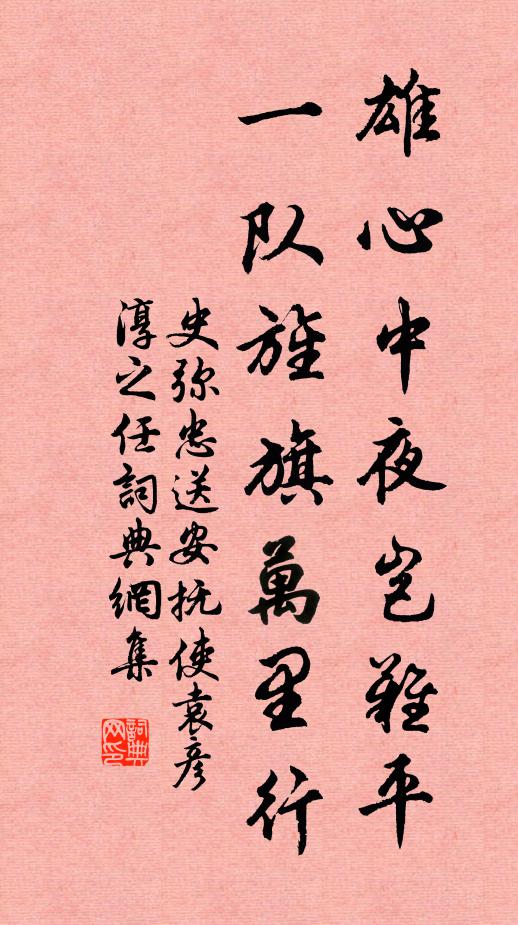 雄心中夜岂難平
一队旌旗萬里行
史弥忠送安抚使袁彦
淳之任詞典網集
詞典網印